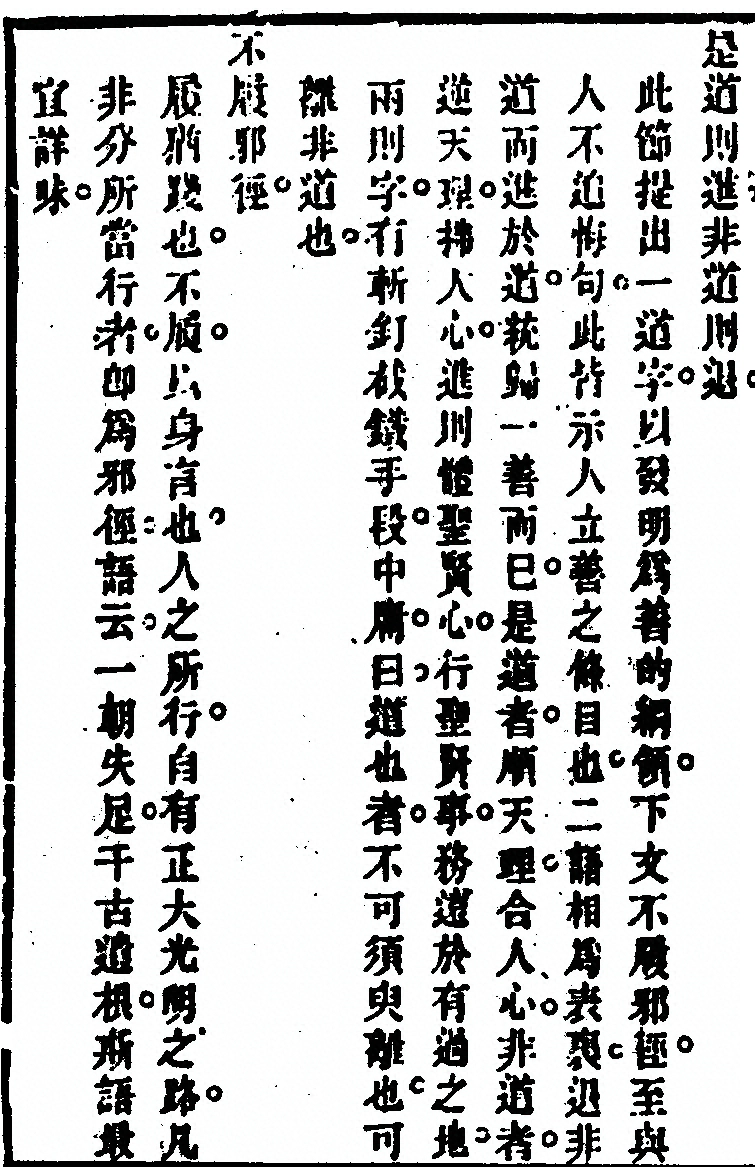 是道則進非道則退
此節提出一道字以發明為善的綱領下文不履邪徑至與
人不追悔句此皆示人立善之條目也二語相為表裏退非
道而進於道統歸一善而已是道者順天理合人心非道者
逆天理拂人心進則體聖賢心行聖賢事務遠於有過之地
兩則字有斬釘截鐵手段中庸曰道也者不可須臾離也可
離非道也
不履邪徑
履猶踐也不履以身言也人之所行自有正大光明之路凡
非分所當行者即為邪徑語云一朝失足千古遺根斯語最
宜詳味